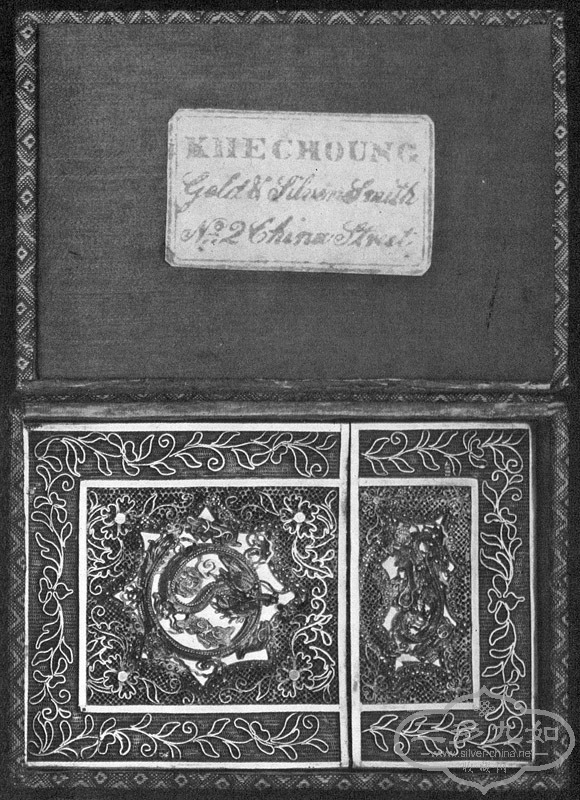 KHECHOUNG
Gold & Silver Smith
No. 2 China Street.
www.silver-china.net